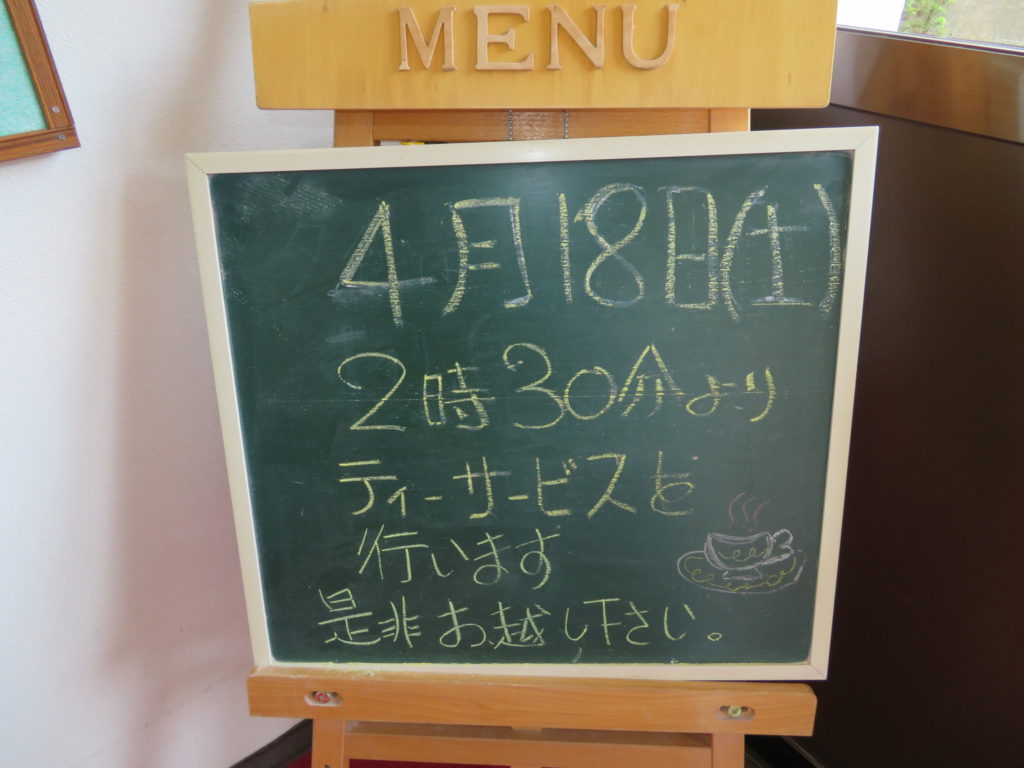 MENU
4月18日(土)
2時30分より
ティーサービスを
行います
是非お越し下さい。